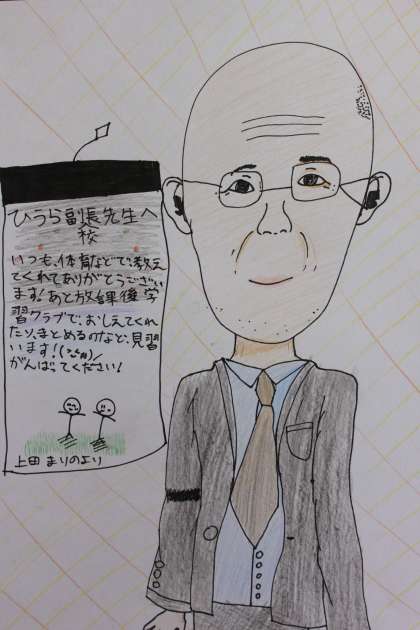 ひうら副長先生へ
校
いつも、体育などで、教え
てくれてありがとうござい
ます！あと放課後学
習クラブで、おしえてくれ
たり、まとめるのなど、見習
います！(>ω<)/
がんばってください！
上田 まりのより